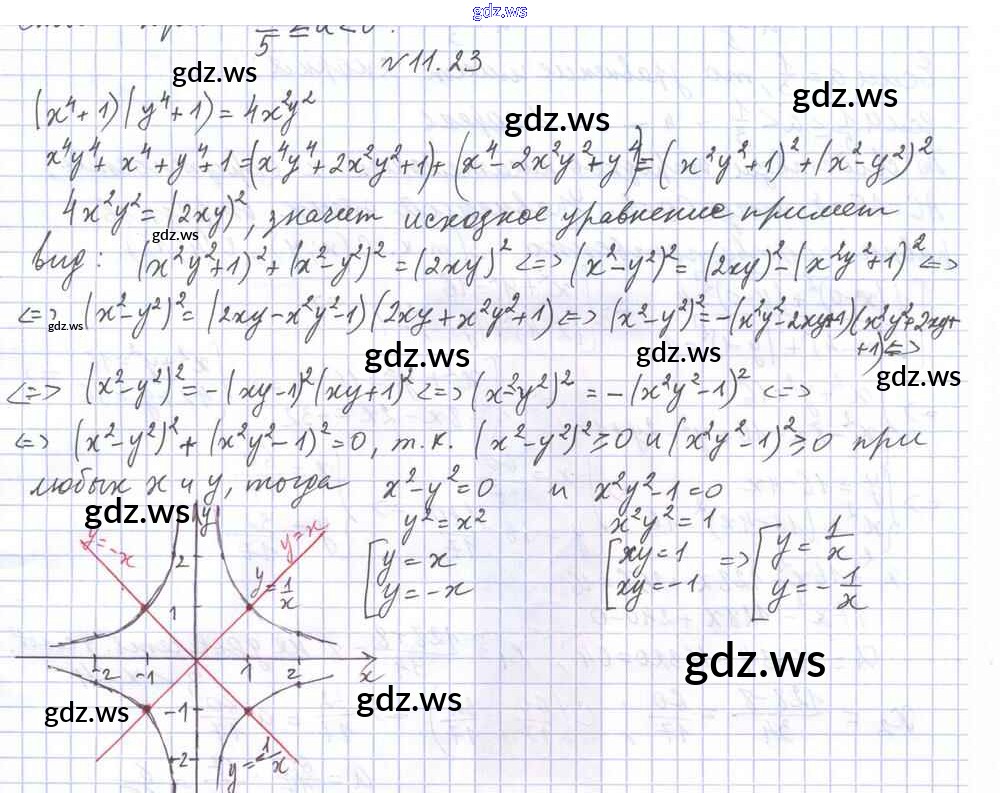 gdz.ws
5 ≤ a < 0.
N 11.23
gdz.ws
gdz.ws
(x⁴+1)(y⁴+1)=4x²y²
gdz.ws
x⁴y⁴+x⁴+y⁴+1=(x⁴y⁴+2x²y²+1)+(x⁴-2x²y²+y⁴)=(x²y²+1)²+(x²-y²)²
4x²y²=(2xy)², значит исходное уравнение примет
gdz.ws
вид: (x²y²+1)²+(x²-y²)²=(2xy)² <=> (x²-y²)²=(2xy)²-(x²y²+1)² <=>
<=> (x²-y²)²=(2xy-x²y²-1)(2xy+x²y²+1) <=> (x²-y²)²=-(x²y²-2xy+1)(x²y²+2xy+
gdz.ws
+1) <=>
gdz.ws
gdz.ws
gdz.ws
<=> (x²-y²)²=-(xy-1)²(xy+1)² <=> (x²-y²)²=-(x²y²-1)² <=>
<=> (x²-y²)²+(x²y²-1)²=0, т.к. (x²-y²)²≥0 и (x²y²-1)²≥0 при
любых x и y, тогда x²-y²=0 и x²y²-1=0
gdz.ws
y²=x² x²y²=1
[y=x [xy=1 => [y=1/x
y=-x xy=-1 y=-1/x
y=-x
y
y=x
2
y=1/x
1
-2 -1 1 2 x
gdz.ws
gdz.ws
gdz.ws
-1
-2
y=-1/x